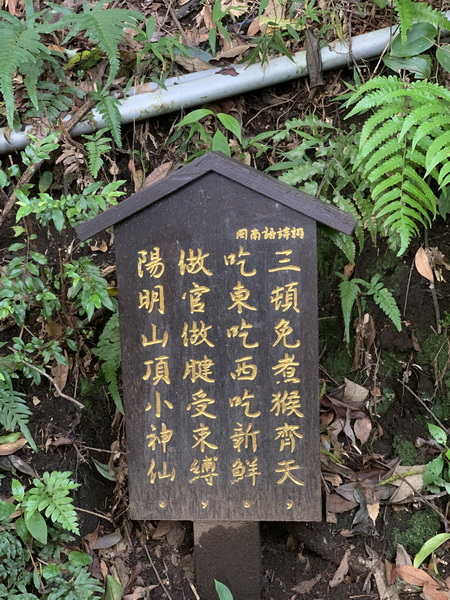 閩南語詩詞
三頓免煮猴齊天，
吃東吃西吃新鮮，
做官做腱受束縛，
陽明山頂小神仙。